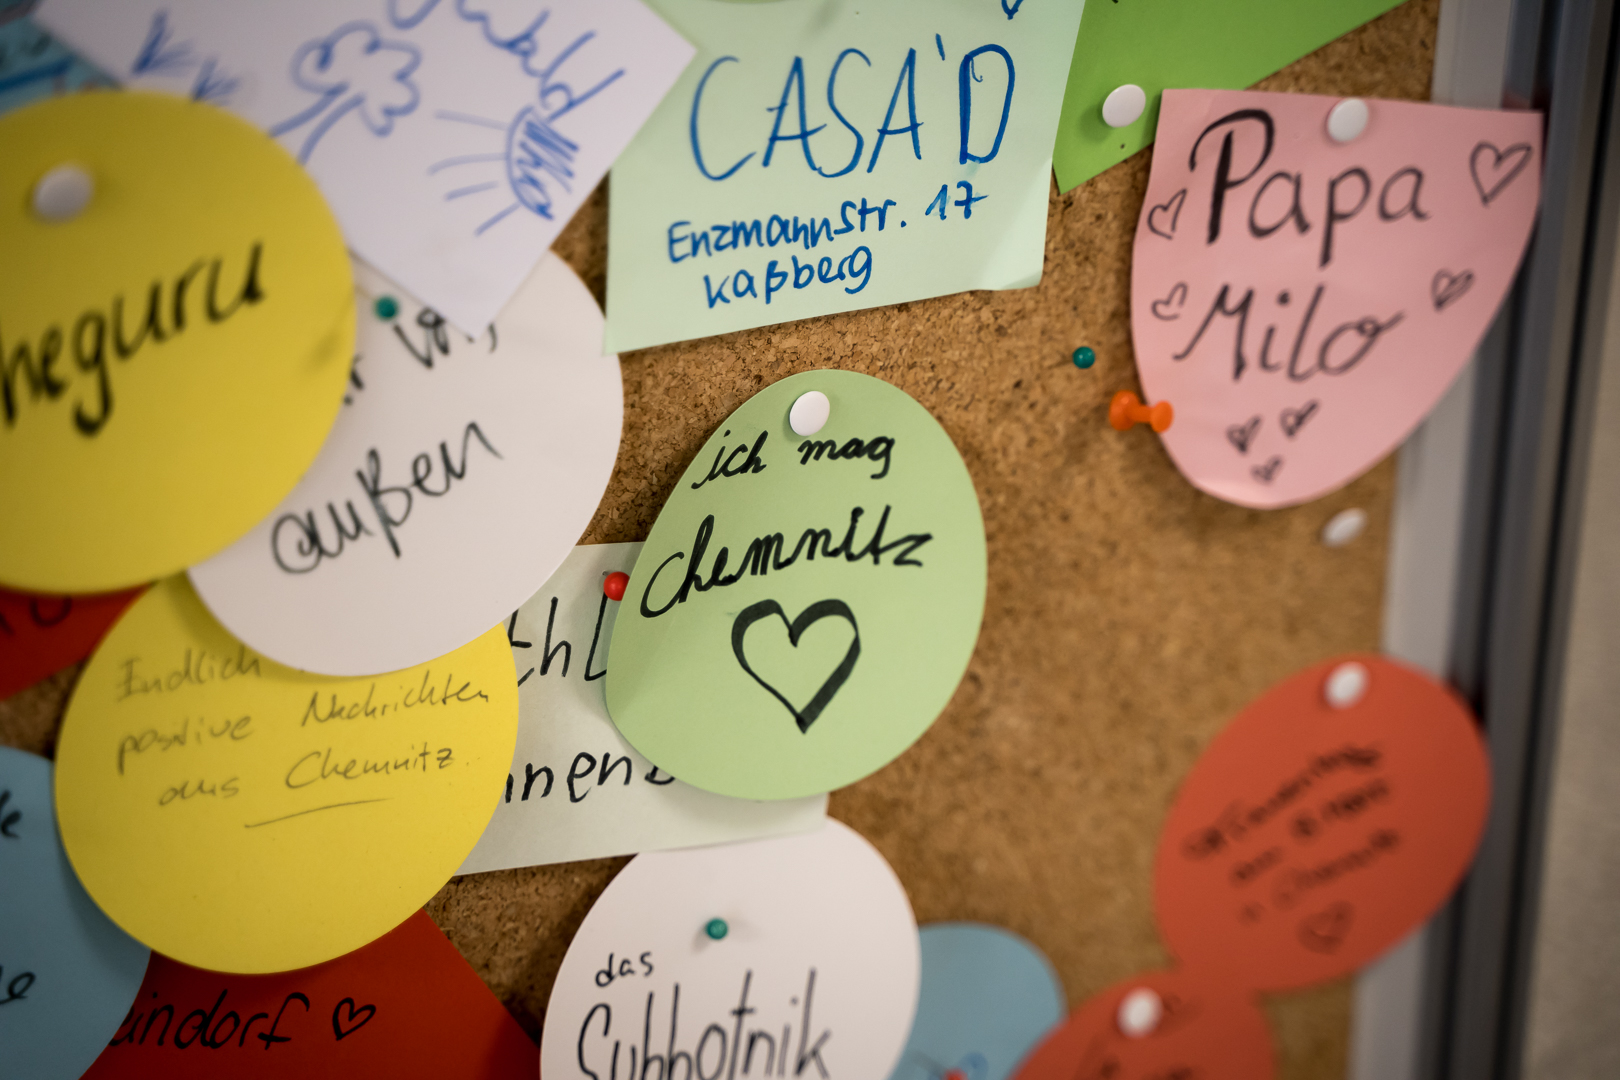 CASA'D
Enzmannstr. 17
Kaßberg
Papa
Milo
heguru
außen
ich mag
Chemnitz
Endlich
positive Nachrichten
aus Chemnitz.
chl
nnen
indorf
das
Subbotnik